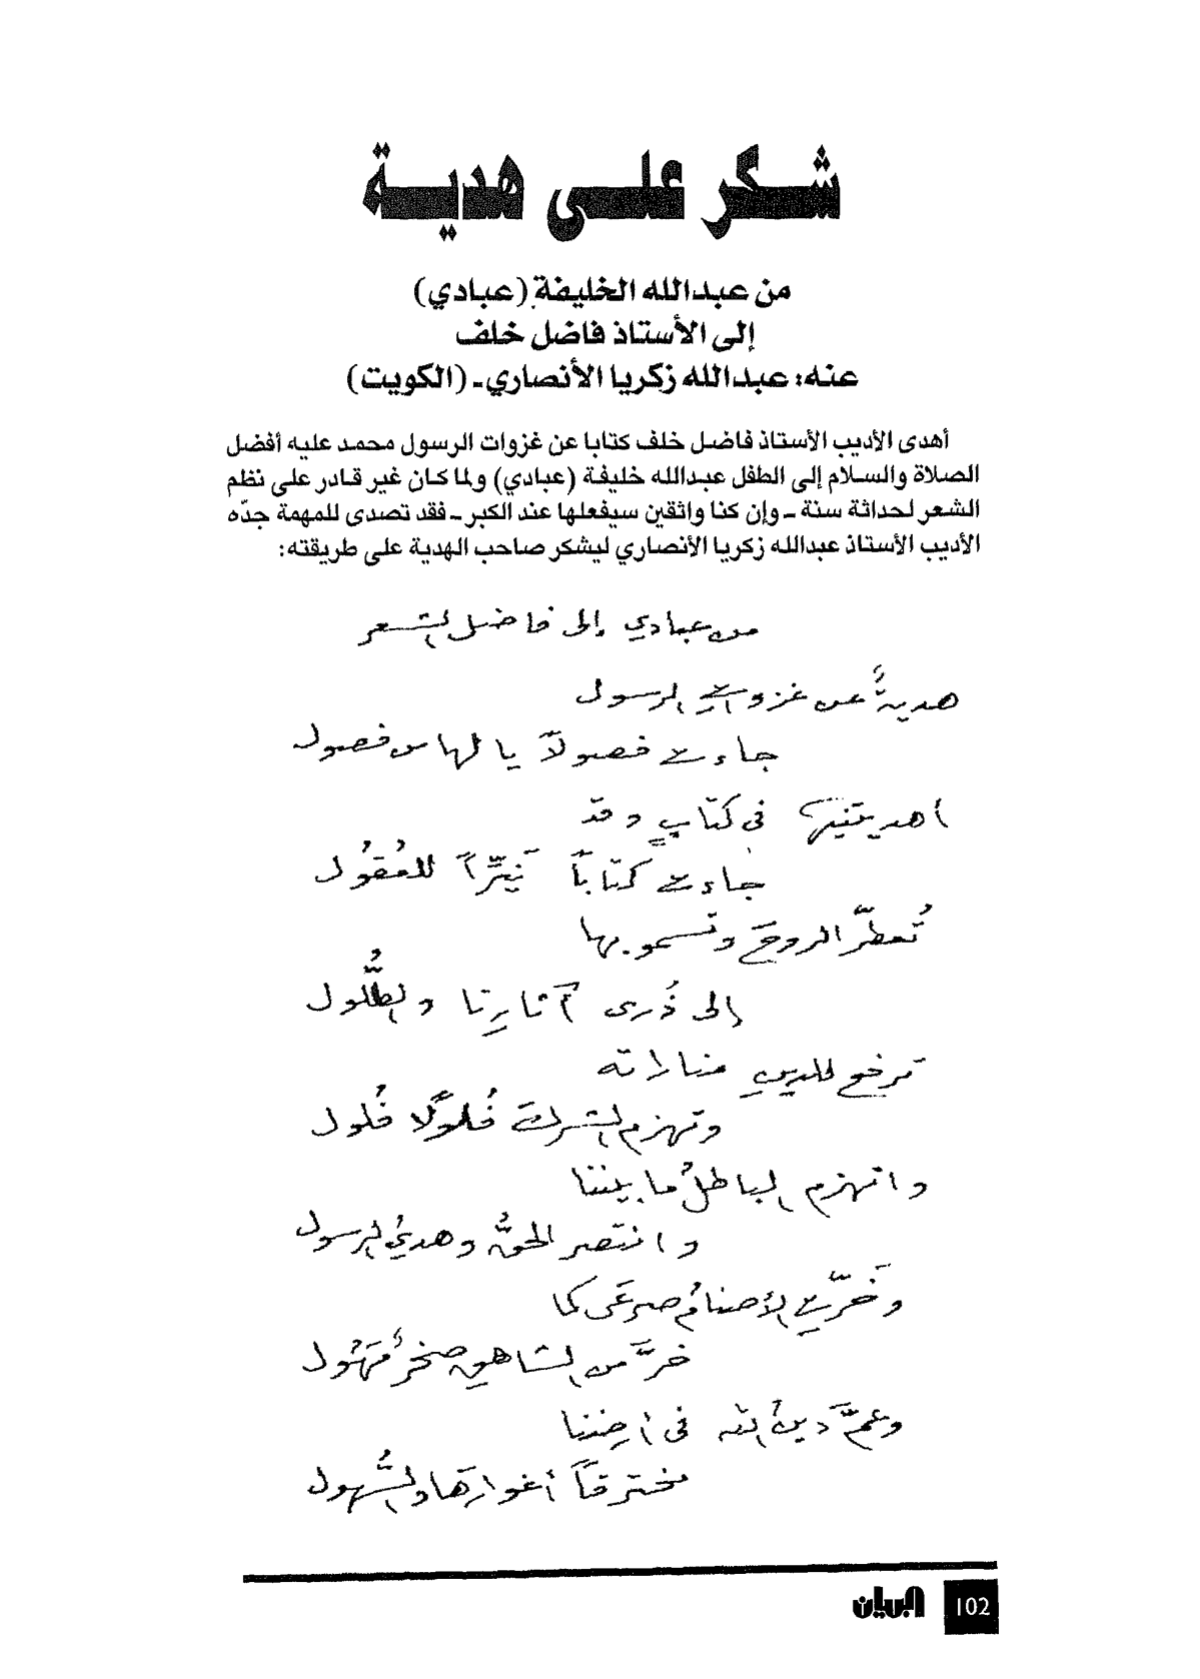 شكر على هدية
من عبدالله الخليفة (عبادي)
إلى الأستاذ فاضل خلف
عنه: عبدالله زكريا الأنصاري ـ (الكويت)
أهدى الأديب الأستاذ فاضل خلف كتابا عن غزوات الرسول محمد عليه أفضل
الصلاة والسلام إلى الطفل عبدالله خليفة (عبادي) ولما كان غير قادر على نظم
الشعر لحداثة سنة ـ وإن كنا واثقين سيفعلها عند الكبر ـ فقد تصدى للمهمة جدّه
الأديب الأستاذ عبدالله زكريا الأنصاري ليشكر صاحب الهدية على طريقته:
من عبادي إلى فاضل الشعر
هديةٌ عن غزواتِ الرسول
جاءت فصولاً يا لها من فصول
أهديتنيها في كتابٍ وقد
جاءت كتاباً نَيِّراً للعُقُول
تُعطّرُ الروحَ وتسمو بها
إلى ذُرى آثارِنا والطُّلول
ترفع للدينِ مناراته
وتهزم الشركَ فُلولًا فُلول
وانهزم الباطلُ ما بيننا
وانتصر الحقُّ وهديُ الرسول
وخَرّتِ الأصنامُ صرعَى كما
خرَّ من الشاهقِ صخرٌ مَهُول
وعمَّ دينُ الله في أرضِنا
مخترقاً أغوارَها والسُّهول
البيان
102